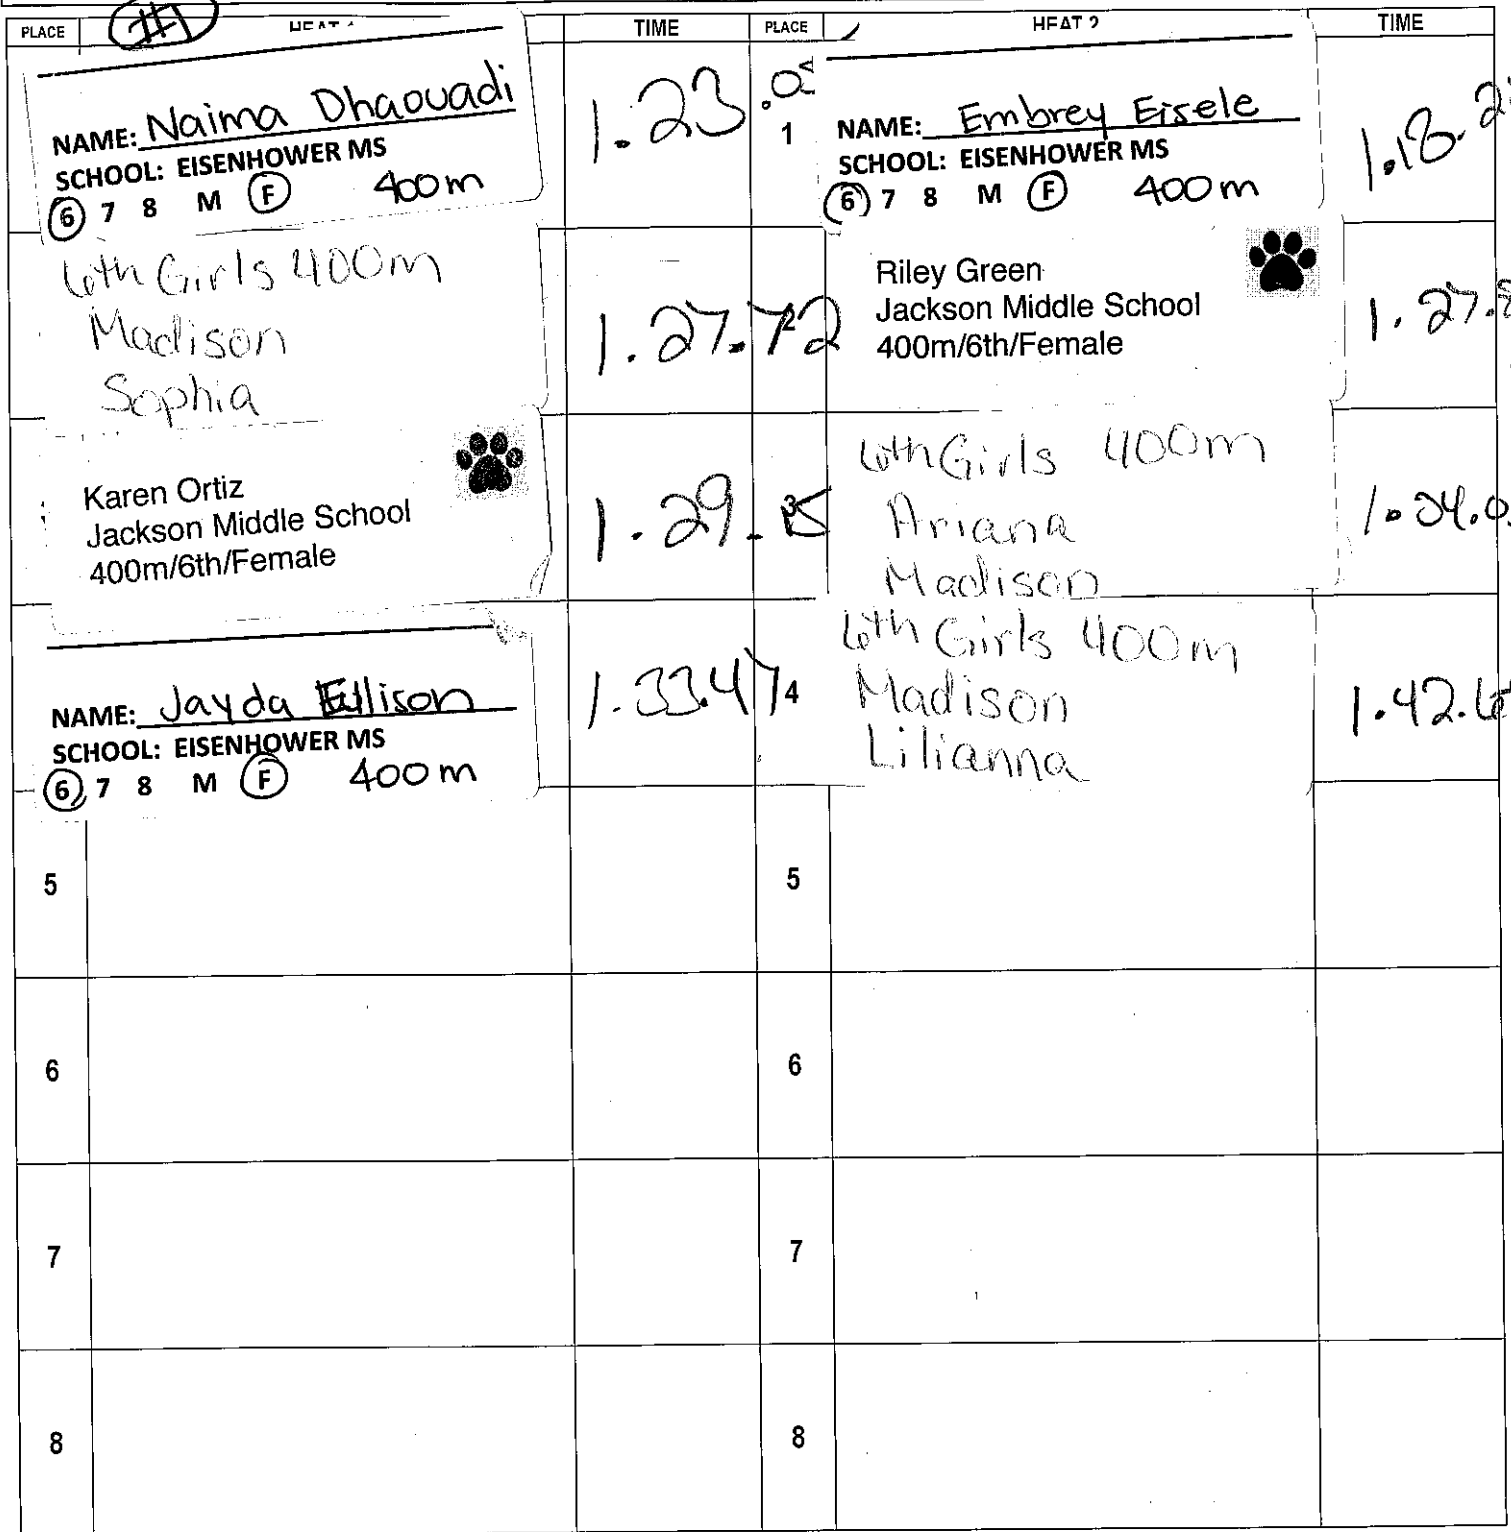 PLACE #1 TIME PLACE HEAT 2 TIME
NAME: Naima Dhaouadi
SCHOOL: EISENHOWER MS
6 7 8 M F 400m
1.23
1
NAME: Embrey Eisele
SCHOOL: EISENHOWER MS
6 7 8 M F 400m
6th Girls 400m
Madison
Sophia
1.27.72
2
Riley Green
Jackson Middle School
400m/6th/Female
1.27.
Karen Ortiz
Jackson Middle School
400m/6th/Female
1.29.
3
6th Girls 400m
Ariana
Madison
NAME: Jayda Ellison
SCHOOL: EISENHOWER MS
6 7 8 M F 400m
1.33.47
4
6th Girls 400m
Madison
Lilianna
1.42.
5 5
6 6
7 7
8 8